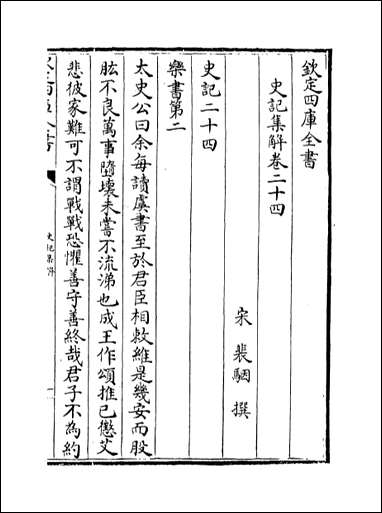 欽定四庫全書
史記集解卷二十四
宋 裴駰 撰
史記二十四
樂書第二
太史公曰余每讀虞書至於君臣相敕維是幾安而股
肱不良萬事墮壞未嘗不流涕也成王作頌推己懲艾
悲彼家難可不謂戰戰恐懼善守善終哉君子不為約
史記集解